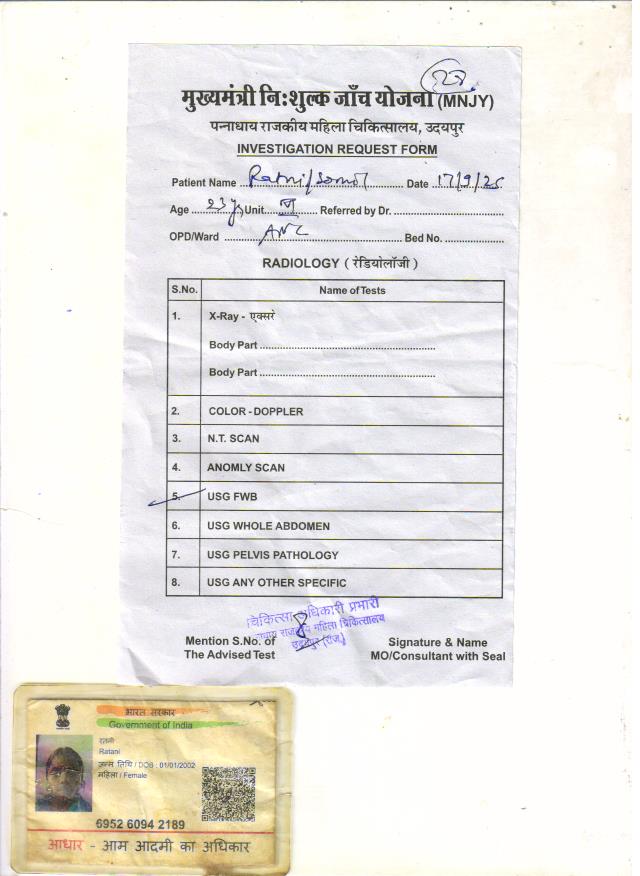 27
मुख्यमंत्री निःशुल्क जाँच योजना (MNJY)
पन्नाधाय राजकीय महिला चिकित्सालय, उदयपुर
INVESTIGATION REQUEST FORM
Patient Name Ratni/Somol Date 17/9/25
Age 23 yr Unit VI Referred by Dr.
OPD/Ward ANC Bed No.
RADIOLOGY ( रेडियोलॉजी )
S.No. Name of Tests
1. X-Ray - एक्सरे
Body Part
Body Part
2. COLOR - DOPPLER
3. N.T. SCAN
4. ANOMLY SCAN
5. USG FWB
6. USG WHOLE ABDOMEN
7. USG PELVIS PATHOLOGY
8. USG ANY OTHER SPECIFIC
चिकित्सा अधिकारी प्रभारी
राजकीय महिला चिकित्सालय
उदयपुर (राज.)
Mention S.No. of Signature & Name
The Advised Test MO/Consultant with Seal
भारत सरकार
Government of India
रतनी
Ratani
जन्म तिथि / DOB : 01/01/2002
महिला / Female
6952 6094 2189
आधार - आम आदमी का अधिकार